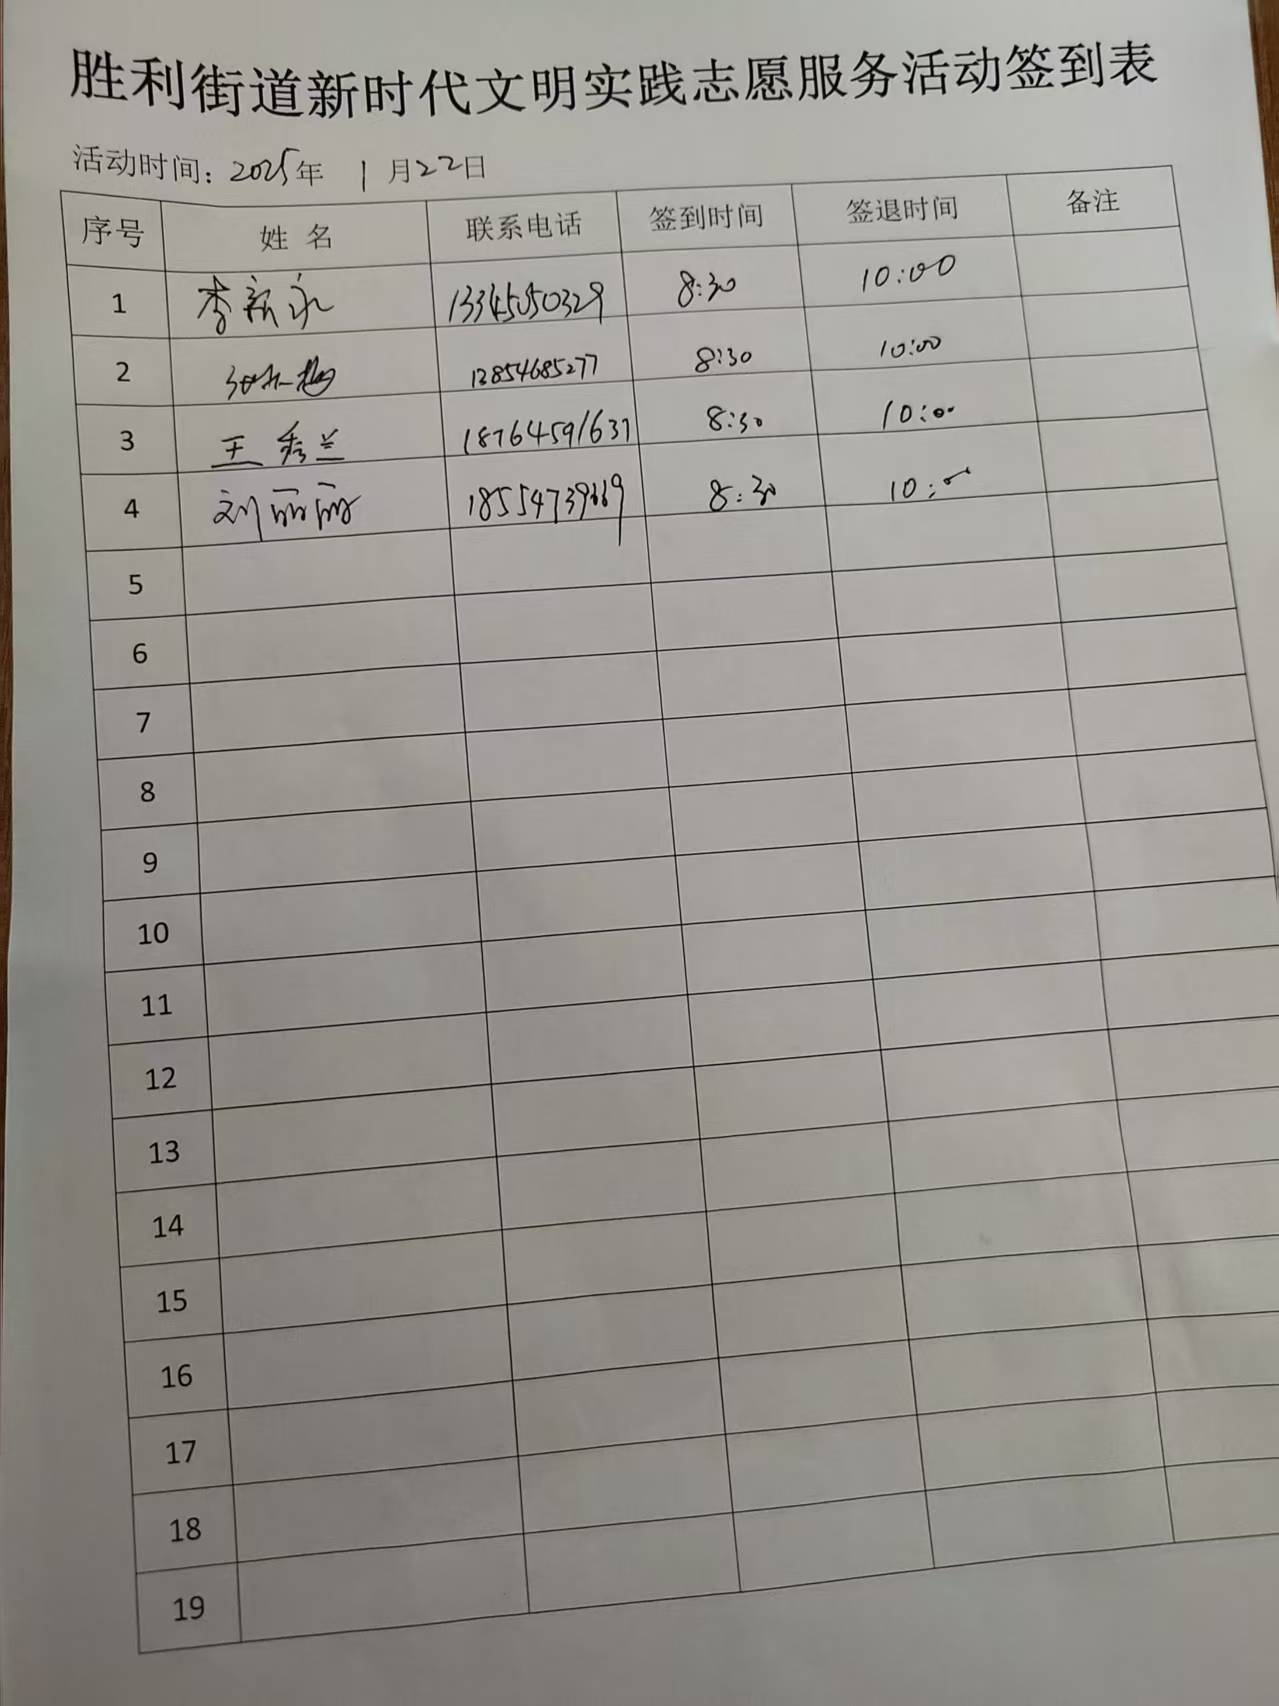 胜利街道新时代文明实践志愿服务活动签到表
活动时间：2025年 1月22日
序号 姓名 联系电话 签到时间 签退时间 备注
1 李新永 13345050329 8:30 10:00
2 13854685277 8:30 10:00
3 王秀兰 18764591637 8:30 10:00
4 刘丽丽 18554739669 8:30 10:00
5
6
7
8
9
10
11
12
13
14
15
16
17
18
19